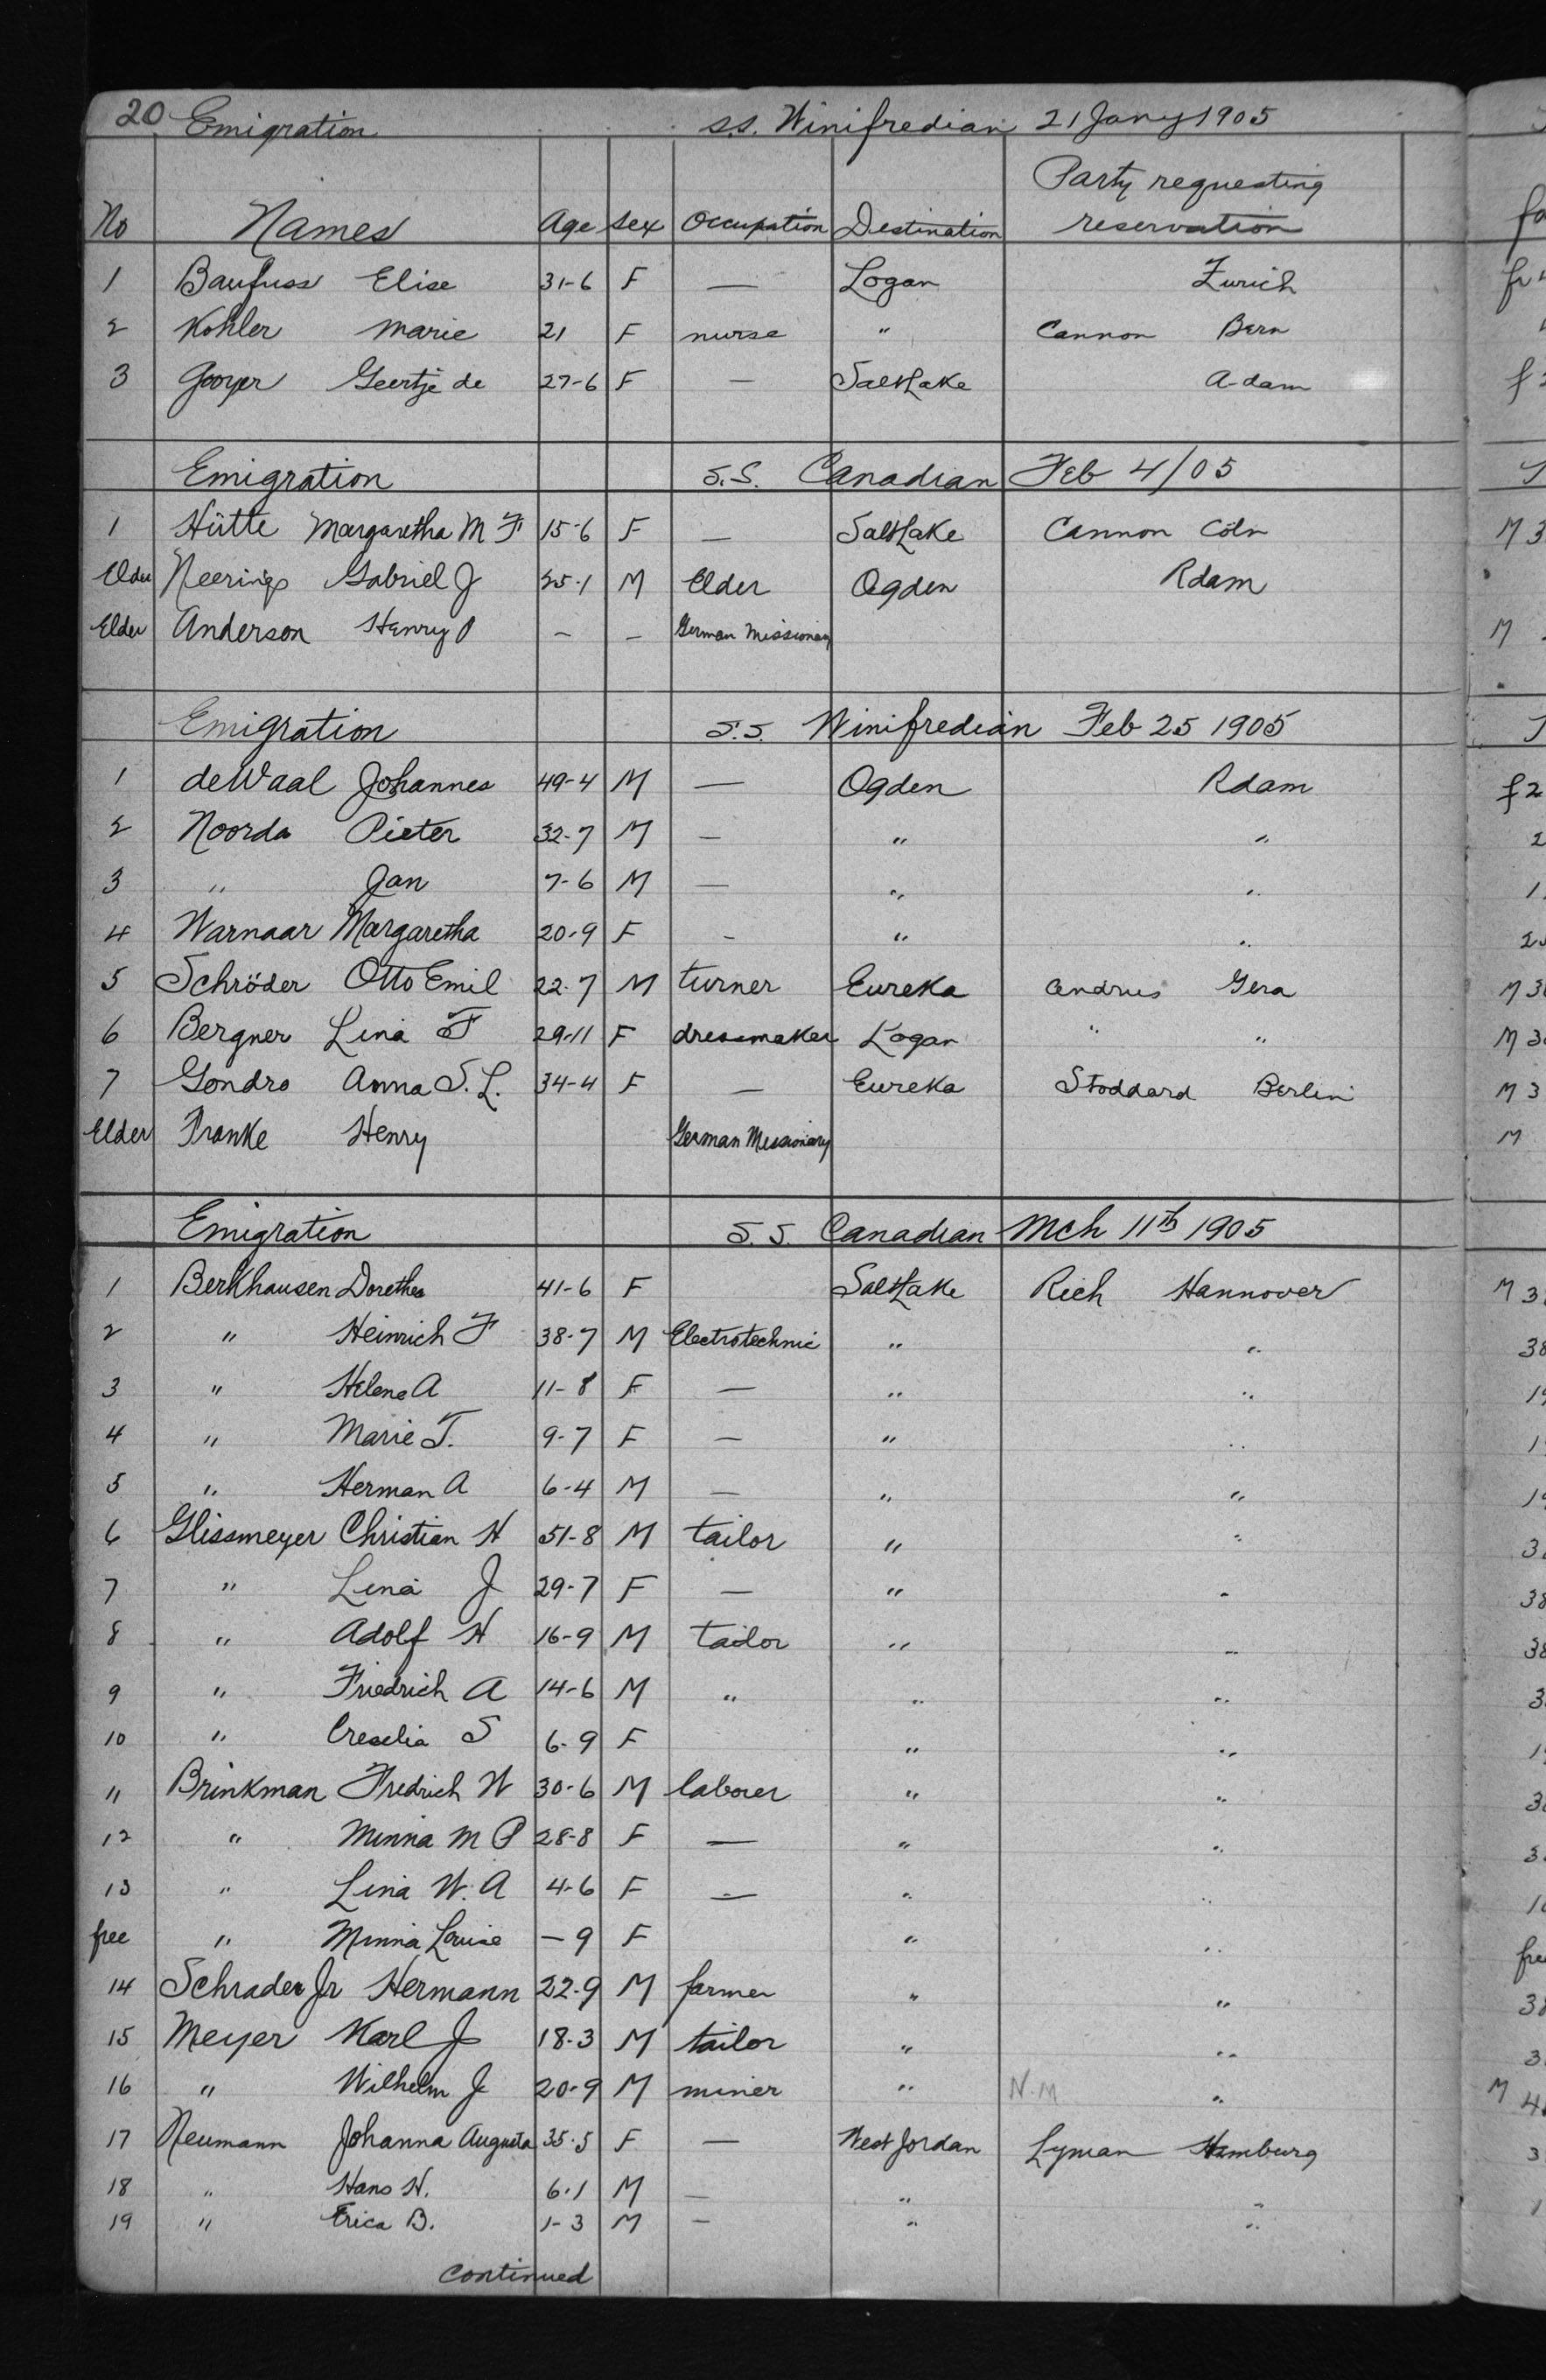 20 Emigration s.s. Winifredian 21 Jany 1905
Party requesting
No Names Age Sex Occupation Destination reservation
1 Baufuss Elise 31-6 F — Logan Zurich
2 Kohler Marie 21 F nurse " Cannon Bern
3 Gooyer Geertje de 27-6 F — Salt Lake A-dam
Emigration S.S. Canadian Feb 4/05
1 Hütte Margaretha M F 15-6 F — Salt Lake Cannon Cöln
Elder Neerings Gabriel J 25-1 M Elder Ogden Rdam
Elder Anderson Henry P — — German Missionary
Emigration S.S. Winifredian Feb 25 1905
1 deWaal Johannes 49-4 M — Ogden Rdam
2 Noorda Pieter 32-7 M — " "
3 " Jan 7-6 M — " "
4 Warnaar Margaretha 20-9 F - " "
5 Schröder Otto Emil 22-7 M turner Eureka Andrus Gera
6 Bergner Lina F 29-11 F dressmaker Logan " "
7 Gondro Anna S. L. 34-4 F — Eureka Stoddard Berlin
Elder Franke Henry German Missionary
Emigration S.S. Canadian Mch 11th 1905
1 Berkhausen Dorethea 41-6 F Salt Lake Rich Hannover
2 " Heinrich F 38-7 M Electrotechnic " "
3 " Helene A 11-8 F — " "
4 " Marie T. 9-7 F — " "
5 " Herman A 6-4 M — " "
6 Glissmeyer Christian H 51-8 M tailor " "
7 " Lina J 29-7 F — " "
8 " Adolf H 16-9 M tailor " "
9 " Friedrich A 14-6 M " " "
10 " S 6-9 F " "
11 Brinkman Fredrich W 30-6 M laborer " "
12 " Minna M P 28-8 F — " "
13 " Lina W. A 4-6 F — " "
free " Minna Louise — 9 F " "
14 Schrader Jr Hermann 22-9 M farmer " "
15 Meyer Karl J 18-3 M tailor " "
16 " Wilhelm J 20-9 M miner " N.M "
17 Neumann Johanna Augusta 35-5 F — West Jordan Lyman Hamburg
18 " Hans H. 6-1 M — " "
19 " Erica B. 1-3 M — " "
continued